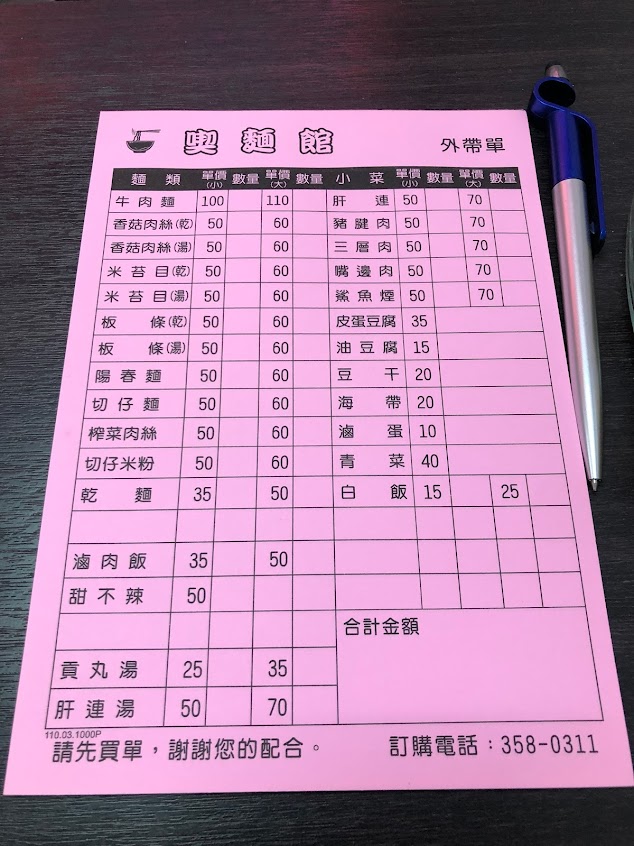 喫麵館
外帶單
麵類 單價(小) 數量 單價(大) 數量 小菜 單價(小) 數量 單價(大) 數量
牛肉麵 100 110 肝連 50 70
香菇肉絲(乾) 50 60 豬腱肉 50 70
香菇肉絲(湯) 50 60 三層肉 50 70
米苔目(乾) 50 60 嘴邊肉 50 70
米苔目(湯) 50 60 鯊魚煙 50 70
板條(乾) 50 60 皮蛋豆腐 35
板條(湯) 50 60 油豆腐 15
陽春麵 50 60 豆干 20
切仔麵 50 60 海帶 20
榨菜肉絲 50 60 滷蛋 10
切仔米粉 50 60 青菜 40
乾麵 35 50 白飯 15 25
滷肉飯 35 50
甜不辣 50
合計金額
貢丸湯 25 35
肝連湯 50 70
110.03.1000P
請先買單，謝謝您的配合。 訂購電話：358-0311